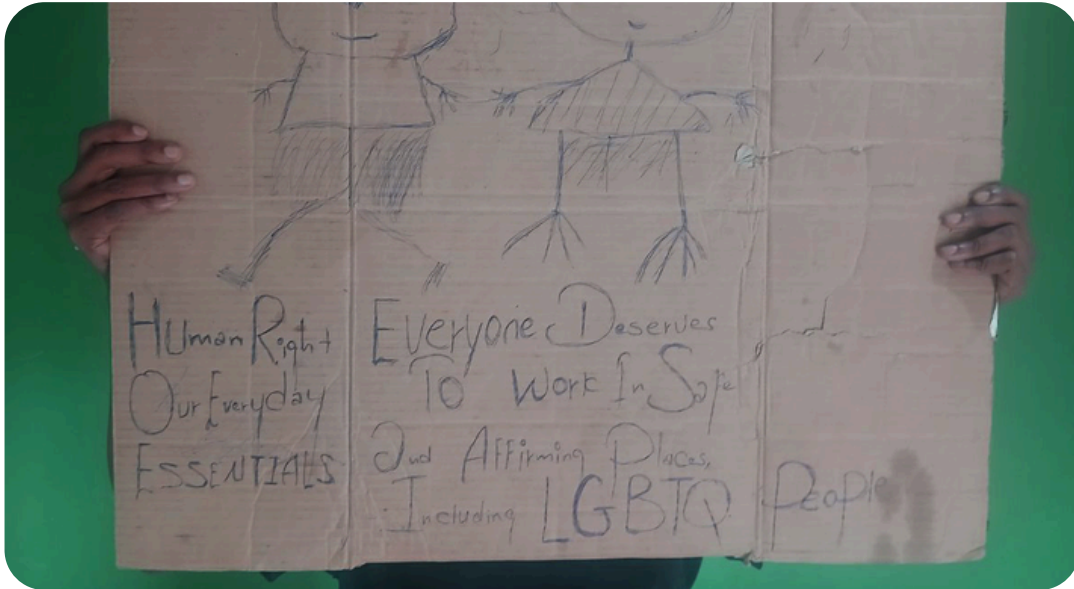 Human Right
Our Everyday
ESSENTIALS
Everyone Deserves
To Work In Safe
And Affirming Places,
Including LGBTQ People